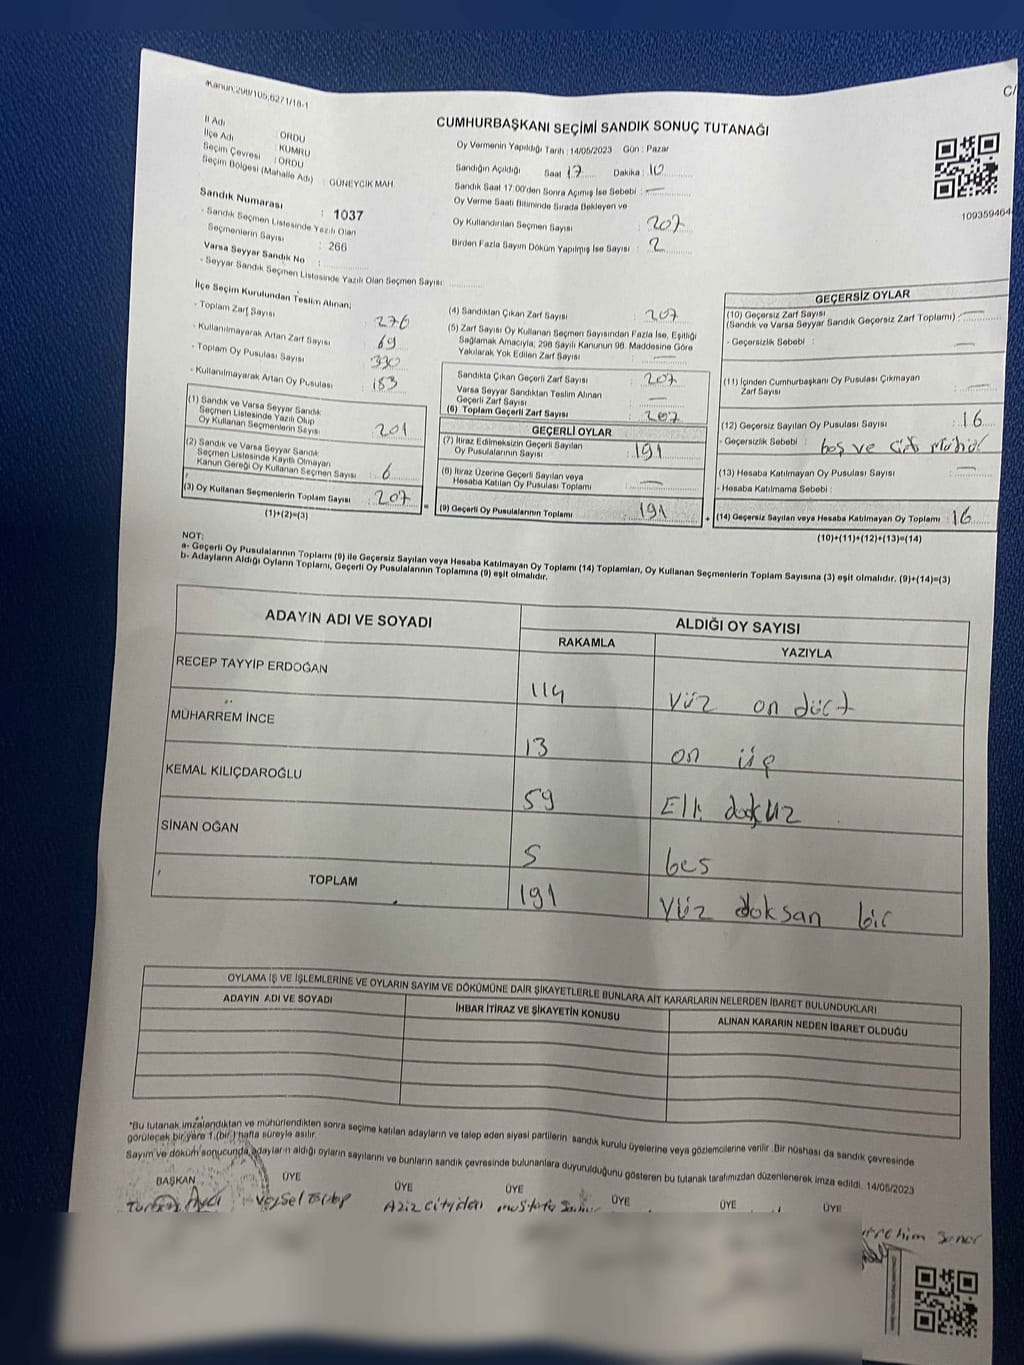 #Kanun;298/105,6271/18-1
C/
CUMHURBAŞKANI SEÇİMİ SANDIK SONUÇ TUTANAĞI
İl Adı : ORDU
İlçe Adı : KUMRU
Seçim Çevresi : ORDU
Seçim Bölgesi (Mahalle Adı) : GÜNEYCİK MAH.
Oy Vermenin Yapıldığı Tarih : 14/05/2023 Gün : Pazar
Sandığın Açıldığı Saat 17 Dakika : 10
Sandık Saat 17.00'den Sonra Açımış İse Sebebi : —
Oy Verme Saati Bitiminde Sırada Bekleyen ve
Oy Kullandırılan Seçmen Sayısı : 207
Birden Fazla Sayım Döküm Yapılmış İse Sayısı : 2
109359464
Sandık Numarası : 1037
- Sandık Seçmen Listesinde Yazılı Olan
Seçmenlerin Sayısı : 266
Varsa Seyyar Sandık No :
- Seyyar Sandık Seçmen Listesinde Yazılı Olan Seçmen Sayısı:
İlçe Seçim Kurulundan Teslim Alınan;
- Toplam Zarf Sayısı : 276
- Kullanılmayarak Artan Zarf Sayısı : 69
- Toplam Oy Pusulası Sayısı : 330
- Kullanılmayarak Artan Oy Pusulası : 183
(1) Sandık ve Varsa Seyyar Sandık
Seçmen Listesinde Yazılı Olup
Oy Kullanan Seçmenlerin Sayısı : 201
(2) Sandık ve Varsa Seyyar Sandık
Seçmen Listesinde Kayıtlı Olmayan
Kanun Gereği Oy Kullanan Seçmen Sayısı : 6
(3) Oy Kullanan Seçmenlerin Toplam Sayısı : 207
(1)+(2)=(3)
(4) Sandıktan Çıkan Zarf Sayısı : 207
(5) Zarf Sayısı Oy Kullanan Seçmen Sayısından Fazla İse, Eşitliği
Sağlamak Amacıyla, 298 Sayılı Kanunun 98. Maddesine Göre
Yakılarak Yok Edilen Zarf Sayısı : —
Sandıkta Çıkan Geçerli Zarf Sayısı : 207
Varsa Seyyar Sandıktan Teslim Alınan
Geçerli Zarf Sayısı : —
(6) Toplam Geçerli Zarf Sayısı : 207
GEÇERLİ OYLAR
(7) İtiraz Edilmeksizin Geçerli Sayılan
Oy Pusulalarının Sayısı : 191
(8) İtiraz Üzerine Geçerli Sayılan veya
Hesaba Katılan Oy Pusulası Toplamı : —
(9) Geçerli Oy Pusulalarının Toplamı : 191
GEÇERSİZ OYLAR
(10) Geçersiz Zarf Sayısı
(Sandık ve Varsa Seyyar Sandık Geçersiz Zarf Toplamı) : —
- Geçersizlik Sebebi : —
(11) İçinden Cumhurbaşkanı Oy Pusulası Çıkmayan
Zarf Sayısı : —
(12) Geçersiz Sayılan Oy Pusulası Sayısı : 16
- Geçersizlik Sebebi : boş ve çift mühür
(13) Hesaba Katılmayan Oy Pusulası Sayısı : —
- Hesaba Katılmama Sebebi :
(14) Geçersiz Sayılan veya Hesaba Katılmayan Oy Toplamı : 16
(10)+(11)+(12)+(13)=(14)
NOT:
a- Geçerli Oy Pusulalarının Toplamı (9) ile Geçersiz Sayılan veya Hesaba Katılmayan Oy Toplamı (14) Toplamları, Oy Kullanan Seçmenlerin Toplam Sayısına (3) eşit olmalıdır. (9)+(14)=(3)
b- Adayların Aldığı Oyların Toplamı, Geçerli Oy Pusulalarının Toplamına (9) eşit olmalıdır.
ADAYIN ADI VE SOYADI ALDIĞI OY SAYISI
RAKAMLA YAZIYLA
RECEP TAYYİP ERDOĞAN 114 Yüz on dört
MUHARREM İNCE 13 on üç
KEMAL KILIÇDAROĞLU 59 Elli dokuz
SİNAN OĞAN 5 bes
TOPLAM 191 Yüz doksan bir
OYLAMA İŞ VE İŞLEMLERİNE VE OYLARIN SAYIM VE DÖKÜMÜNE DAİR ŞİKAYETLERLE BUNLARA AİT KARARLARIN NELERDEN İBARET BULUNDUKLARI
ADAYIN ADI VE SOYADI İHBAR İTİRAZ VE ŞİKAYETİN KONUSU ALINAN KARARIN NEDEN İBARET OLDUĞU
*Bu tutanak imzalandıktan ve mühürlendikten sonra seçime katılan adayların ve talep eden siyasi partilerin sandık kurulu üyelerine veya gözlemcilerine verilir. Bir nüshası da sandık çevresinde
görülecek bir yere 1 (bir) hafta süreyle asılır.
Sayım ve döküm sonucunda adayların aldığı oyların sayılarını ve bunların sandık çevresinde bulunanlara duyurulduğunu gösteren bu tutanak tarafımızdan düzenlenerek imza edildi. 14/05/2023
BAŞKAN ÜYE ÜYE ÜYE ÜYE ÜYE ÜYE
Veysel Aziz Mustafa Şener